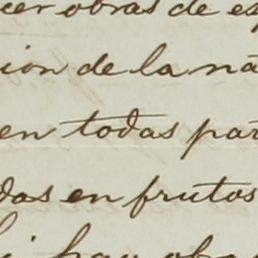 cer obras de es
ion de la na
en todas par
das en frutos
hay obra